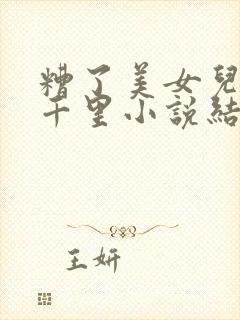 糟了美女兒
千里小說結
王妍